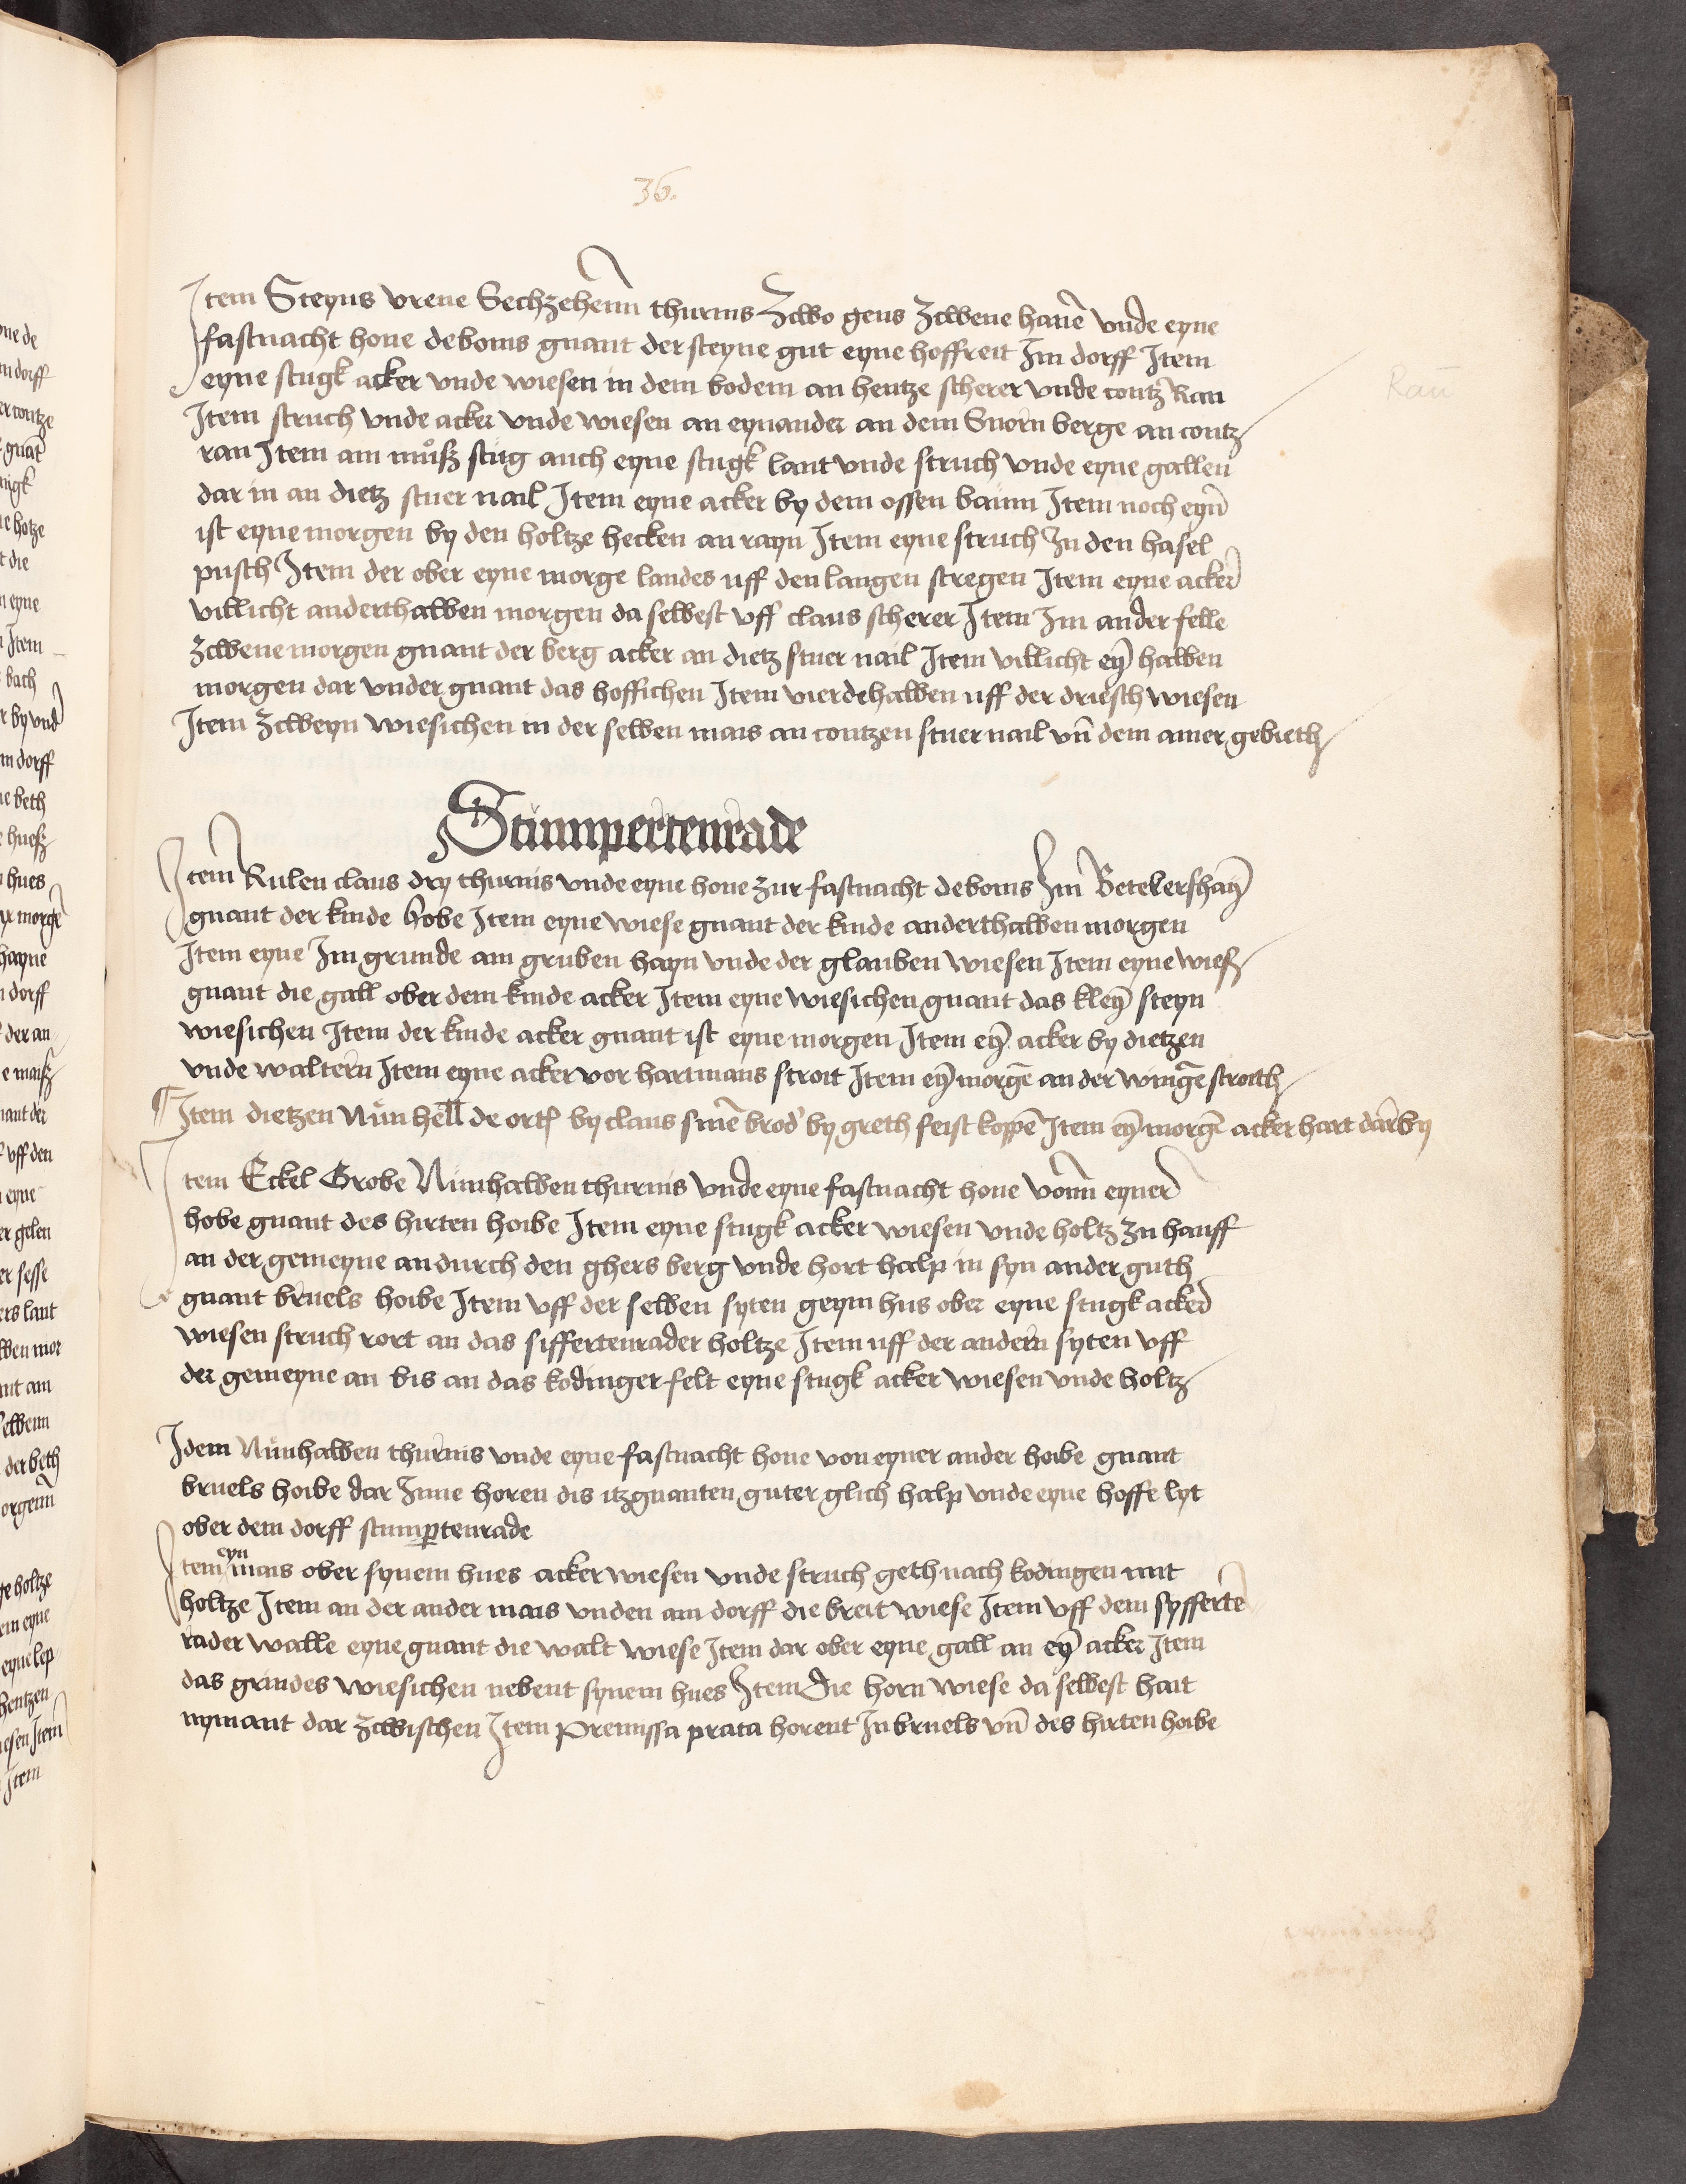 36.
Item Steyns vrene Sechzehenn thurnis Zcwo gens Zcwene hanē vnde eyne
fastnacht hone de bonis gnant der steyne gut eyne hoffreit Im dorff Item
eyne stugk acker vnde wiesen in dem bodem an hentze scherer vnde contz Rau
Item struch vnde acker vnde wiesen an eynander an dem Snorn berge an contz
rau Item am muͦß stug auch eyne stugk lant vnde struch vnde eyne gallen
dar in an dietz stuer nail Item eyne acker by dem ossen baum Item noch eyn̄
ist eyne morgen by den holtze hecken an rayn Item eyne struch In den hasel
pusch Item der ober eyne morge landes uff den langen stregen Item eyne acker
villicht anderthalben morgen da selbest vff claus scherer Item Im ander felle
Zcwene morgen gnant der berg acker an dietz stuer nail Item villicht eyn̄ halben
morgen dar vnder gnant das hoffichen Item vierdehalben uff der driesch wiesen
Item Zcweyn wiesichen in der selben mais an contzen stuer nail vn̄ dem amer gebieth
Rau
Stumpertenrade
Item Rulen claus dry thurnis vnde eyne hone zur fastnacht de bonis Im Betelershayn̄
gnant der kinde hobe Item eyne wiese gnant der kinde anderthalben morgen
Item eyne Im grunde am gruben hayn vnde der glauben wiesen Item eyne wieß
gnant die gall ober dem kinde acker Item eyne wiesichen gnant das kleyn̄ steyn
wiesichen Item der kinde acker gnant ist eyne morgen Item eyn̄ acker by dietzen
vnde waltern Item eyne acker vor hartmans stroit Item eyn̄ morgē an der stroith
Item dietzen Nuͦn hell de ort by claus smē brod by greth feist koppē Item eyn̄ morgē acker hart darby
Item Eckel Grobe Nunhalben thurnis vnde eyne fastnacht hone vonn eyner
hobe gnant des hirten hoibe Item eyne stugk acker wiesen vnde holtz zu hauff
an der gemeyne an durch den ghers berg vnde hort halp in syn ander guth
gnant bruels hoibe Item vff der selben syten geym hus ober eyne stugk acker
wiesen struch rort an das siffertenrader holtze Item uff der andern syten vff
der gemeyne an bis an das kodinger felt eyne stugk acker wiesen vnde holtz
Idem Nuͦnhalben thurnis vnde eyne fastnacht hone von eyner ander hoibe gnant
bruels hoibe dar Inne horen dis itzgnanten guter glich halp vnde eyne hoffe lyt
ober dem dorff stump̱tenrade
Item eyn mais ober synem hues acker wiesen vnde struch geth nach kodingen mit
holtze Item an der ander mais vnden am dorff die breit wiese Item vff dem syfferte
rader walle eyne gnant die walt wiese Item dar ober eyne gall an eyn̄ acker Item
das grindes wiesichen nebent synem hues Item die horn wiese da selbest hait
nymant dar zcwischen Item Premissa prata horent In bruels vn̄ des hirten hoibe